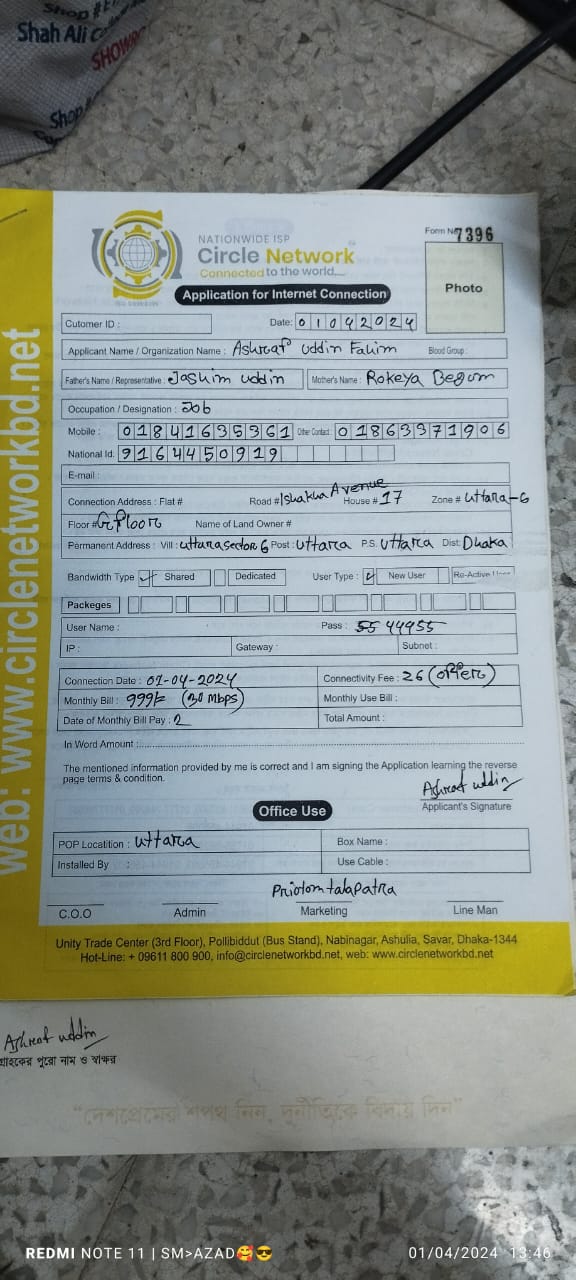 Shop #
Shah Ali
SHOWR
Shop
Form No 7396
NATIONWIDE ISP
Circle Network
Connected to the world....
Photo
Application for Internet Connection
Cutomer ID :
Date: 01042024
Applicant Name / Organization Name : Ashraf uddin Fahim Blood Group :
Father's Name / Representative : Jashim uddin Mother's Name : Rokeya Begum
Occupation / Designation : Job
Mobile : 01841635361 Other Contact: 01863371906
National Id: 9164450919
E-mail :
Connection Address : Flat # Road # Ishakha Avenue House # 17 Zone # Uttara-6
Floor # G.Floor Name of Land Owner #
Permanent Address : Vill : uttara sector 6 Post : uttara P.S. uttara Dist: Dhaka
Bandwidth Type Shared Dedicated User Type : New User Re-Active User
Packeges
User Name : Pass : 5544955
IP : Gateway : Subnet :
Connection Date : 02-04-2024 Connectivity Fee : 26 (offer)
Monthly Bill : 999৳ (30 Mbps) Monthly Use Bill :
Date of Monthly Bill Pay : 2 Total Amount :
In Word Amount :
The mentioned information provided by me is correct and I am signing the Application learning the reverse
page terms & condition.
Ashraf uddin
Applicant's Signature
Office Use
POP Locatition : uttara Box Name :
Installed By : Use Cable :
Priotom talapatra
C.O.O Admin Marketing Line Man
Unity Trade Center (3rd Floor), Pollibiddut (Bus Stand), Nabinagar, Ashulia, Savar, Dhaka-1344
Hot-Line: + 09611 800 900, info@circlenetworkbd.net, web: www.circlenetworkbd.net
web: www.circlenetworkbd.net
Ashraf uddin
গ্রাহকের পুরো নাম ও স্বাক্ষর
"দেশপ্রেমের শপথ নিন, দুর্নীতিকে বিদায় দিন"
REDMI NOTE 11 | SM>AZAD🥰😎
01/04/2024 13:46